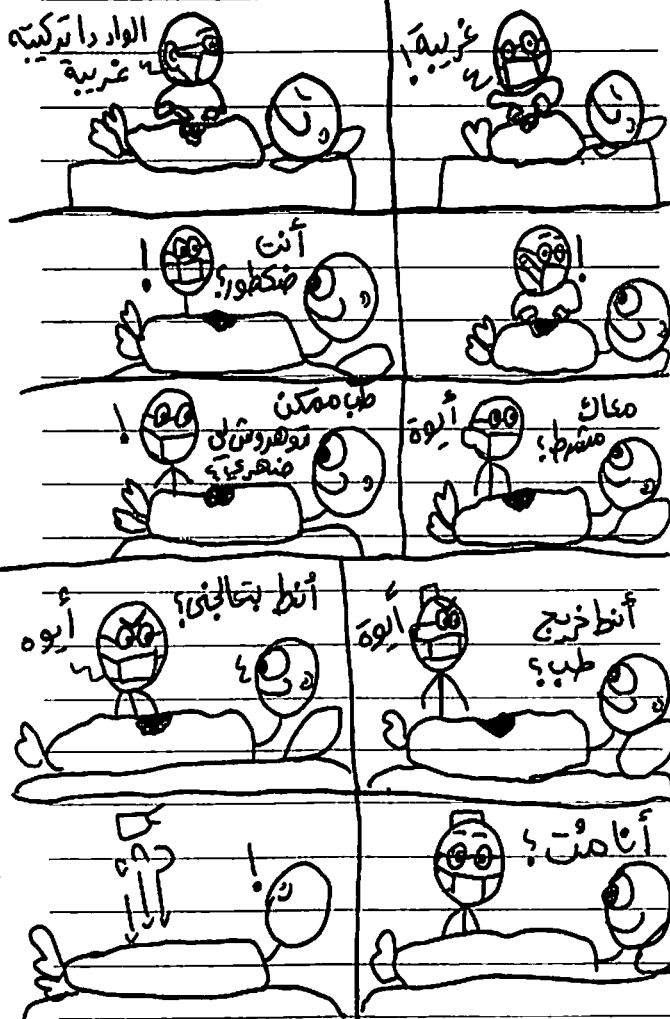 غريبة!
الواد دا تركيبته
غريبة
!
أنت
ضكطور؟
!
معاك
مشرط؟
أيوة
طب ممكن
توهروش لي
ضهري؟
!
أنط خريج
طب؟
أيوة
أنط بتعالجني؟
أيوه
أنا مُت؟
!